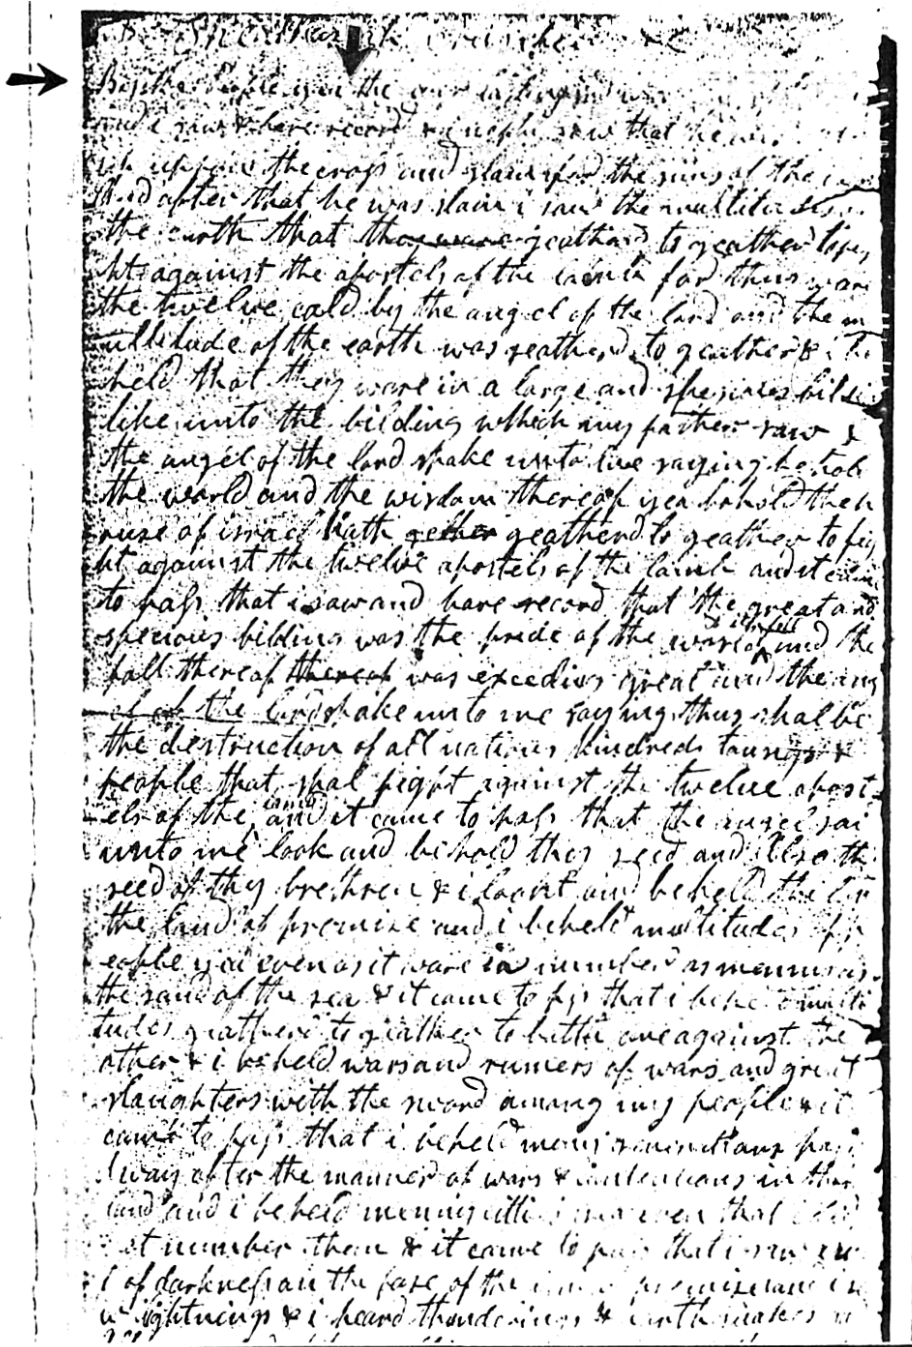 by the People yea the ever lasting god was
and i saw & bare record & i nephi saw that he was
up uppon the cross and slain for the sins of the
And after that he was slain i saw the multitudes
the earth that they ware geatherd to geather to fi
ht against the apostels of the lamb for thus ware
the twelve cald by the angel of the lord and the m
ultitude of the earth was geatherd to geather & i be
held that they ware in a large and spesious bild
like unto the bilding which my father saw &
the angel of the lord spake unto me saying behold
the world and the wisdom thereof yea behold the h
ouse of israel hath gether geatherd to geather to fig
ht against the twelve apostels of the lamb and it came
to pass that i saw and bare record that the great and
specious bilding was the pride of the world & it fell and the
fall thereof thereof was exceeding great and the ang
el of the lord spake unto me saying thus shal be
the destruction of all nations kindreds toungs &
people that shal fight against the twelve apost
els of the lamb and it came to pass that the angel sai
unto me look and behold thy seed and also the
seed of thy brethren & i lookt and beheld the
the land of promise and i beheld multitudes of p
eople yea even as it ware in number as menny as
the sand of the sea & it came to pass that i beheld multi
tudes geatherd to geather to battle one against the
other & i beheld wars and rumers of wars and great
slaughters with the sword among my people & it
came to pass that i beheld menny generations pass
away after the manner of wars & contentions in the
land and i beheld menny citties yea even that i did
not number them & it came to pass that i saw a
t of darkness on the face of the land of promise and i sa
w lightnings & i heard thunderings & earthquakes